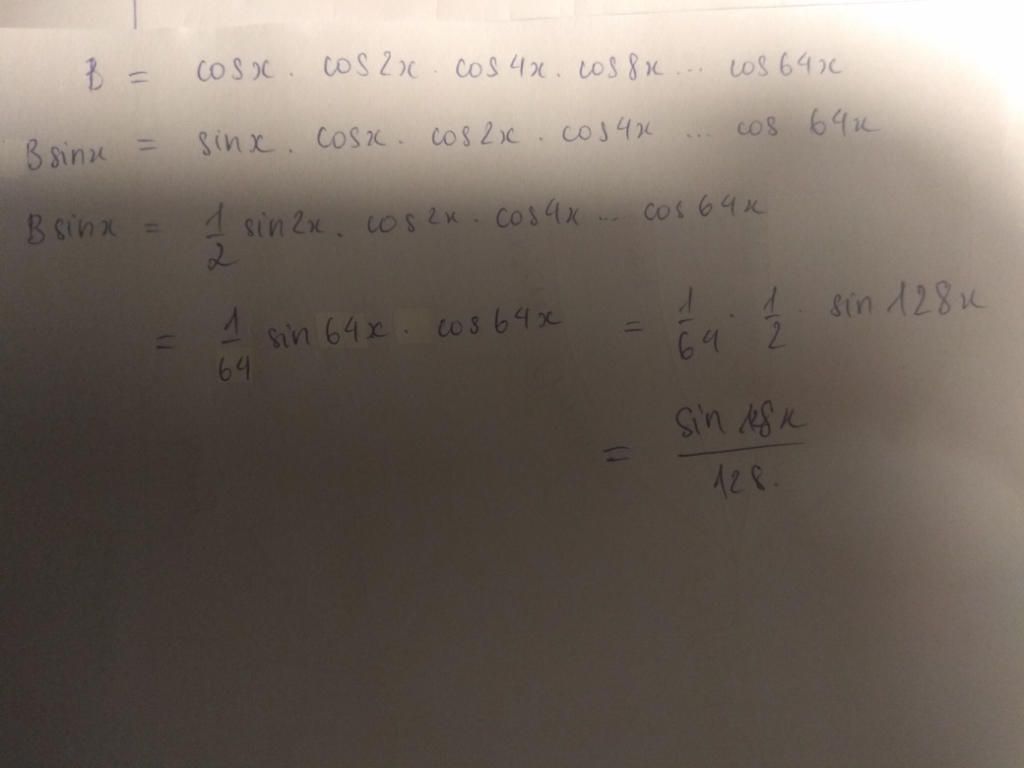 B = cosx . cos2x . cos4x . cos8x ... cos64x
Bsinx = sinx . cosx . cos2x . cos4x ... cos 64x
Bsinx = 1/2 sin2x . cos2x . cos4x ... cos64x
= 1/64 sin64x . cos64x = 1/64 . 1/2 . sin128x
= sin 128x / 128.